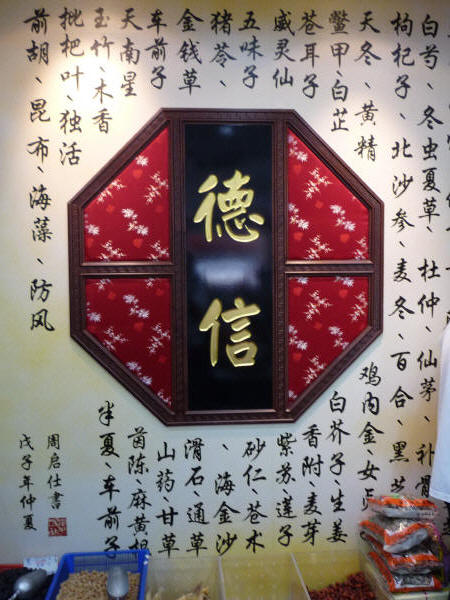 白芍、冬虫夏草、杜仲、仙茅、补骨
枸杞子、北沙参、麦冬、百合、黑芝
天冬、黄精
鸡内金、女
鳖甲、白芷
白芥子、生姜
苍耳子
香附、麦芽
威灵仙
紫苏、莲子
五味子
砂仁、苍术
猪苓、
、海金沙
金钱草
滑石、通草
车前子
山药、甘草
天南星
茵陈、麻黄根
玉竹、木香
半夏、车前子
枇杷叶、独活
前胡、昆布、海藻、防风
周启仕書
戊子年仲夏
德信